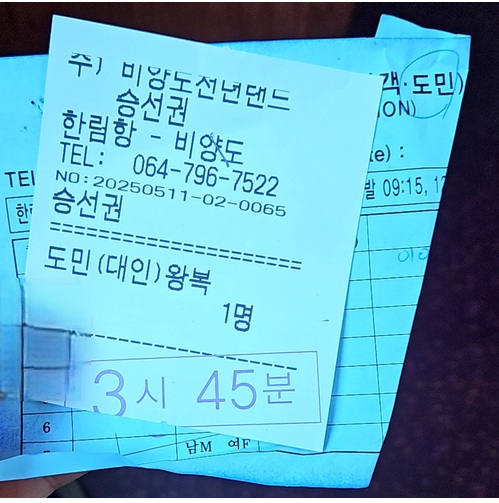 주) 비양도천년랜드
승선권
한림항 - 비양도
TEL: 064-796-7522
NO:20250511-02-0065
승선권
도민(대인)왕복
1명
3시 45분
객·도민)
ION)
te) :
TEL
발 09:15, 1
한
6
남M 여F